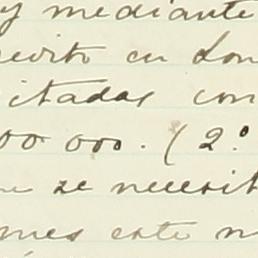 y mediante
edito en Lon
citadas con
00 000. ( 2º
se necesit
mes este n